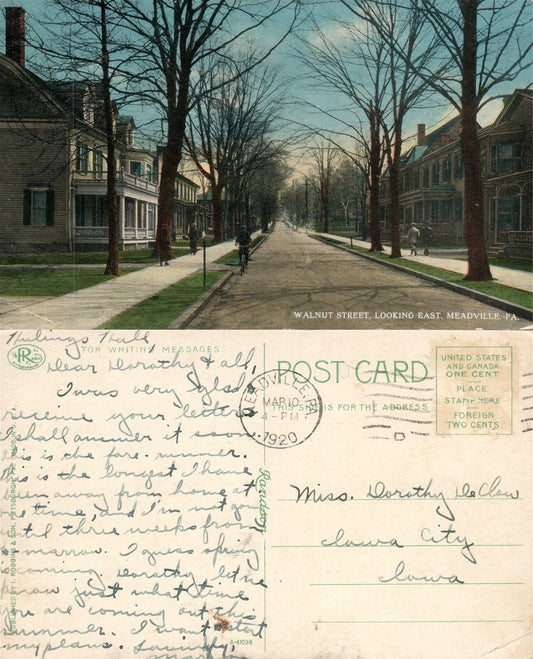 WALNUT STREET, LOOKING EAST, MEADVILLE, PA.
Hulings Hall
PR
FOR WRITING MESSAGES
Dear Dorothy & all,
I was very glad
receive your letter
I shall answer it soon
is is the fore-runner.
is is the longest I have
been away from home at
ne time, and I'm not go
until three weeks from
morrow. I guess spring
coming. Dorothy let me
know just what time
you are coming out this
summer. I want to start
my plans. Lovingly,
PUBLISHED BY I. ROBBINS & SON, PITTSBURGH, PA.
Pandory
A-41038
POST CARD
THIS SIDE IS FOR THE ADDRESS
MEADVILLE, PA.
MAR 10
4-PM
1920
UNITED STATES
AND CANADA
ONE CENT
PLACE
STAMP HERE
FOREIGN
TWO CENTS
Miss. Dorothy DeClow
Iowa City
Iowa